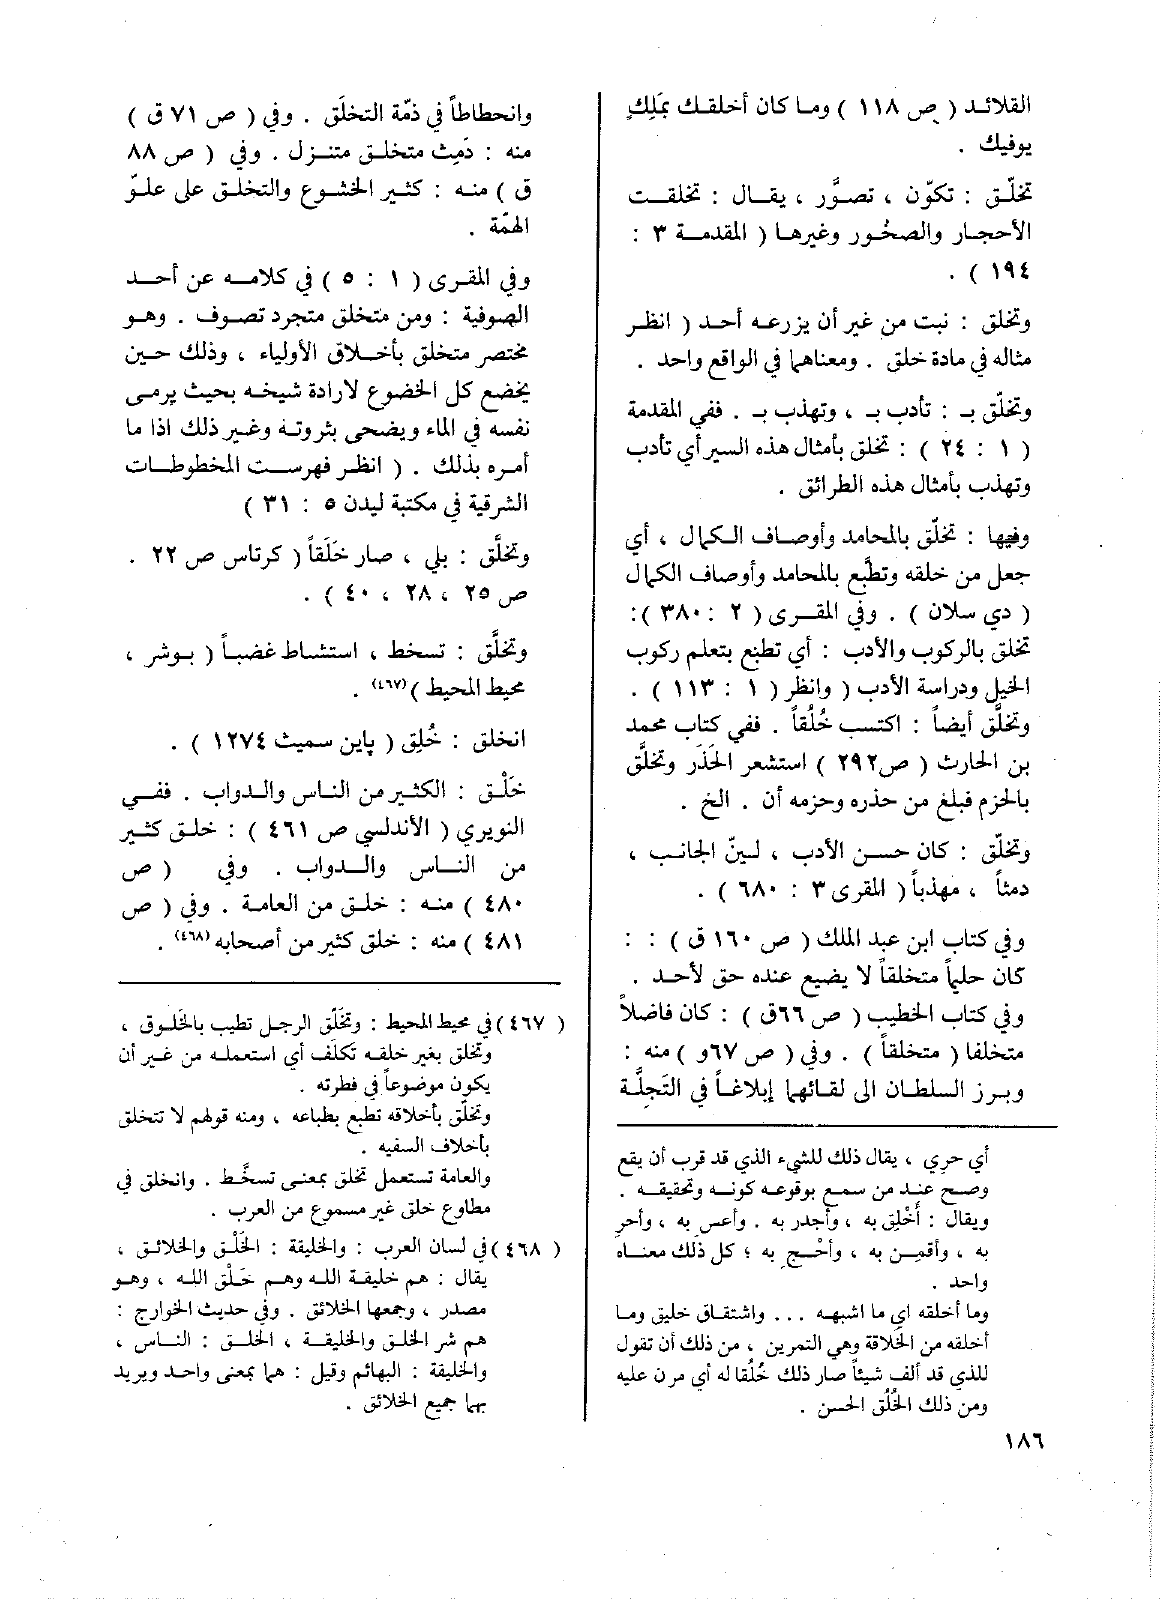 القلائد ( ص ١١٨ ) وما كان أخلقك بمَلِكٍ
يوفيك .
تخلّق : تكوّن ، تصوَّر ، يقال : تخلقت
الأحجار والصخُور وغيرها ( المقدمة ٣ :
١٩٤ ) .
وتخلق : نبت من غير أن يزرعه أحد ( انظر
مثاله في مادة خلق . ومعناهما في الواقع واحد .
وتخلّق بـ : تأدب بـ ، وتهذب بـ . ففي المقدمة
( ١ : ٢٤ ) : تخلق بأمثال هذه السير أي تأدب
وتهذب بأمثال هذه الطرائق .
وفيها : تخلّق بالمحامد وأوصاف الكمال ، أي
جعل من خلقه وتطبَّع بالمحامد وأوصاف الكمال
( دي سلان ) . وفي المقرى ( ٢ : ٣٨٠ ) :
تخلق بالركوب والأدب : أي تطبع بتعلم ركوب
الخيل ودراسة الأدب ( وانظر ( ١ : ١١٣ ) .
وتخلَّق أيضاً : اكتسب خُلُقاً . ففي كتاب محمد
بن الحارث ( ص٢٩٢ ) استشعر الحَذَر وتخلَّق
بالحزم فبلغ من حذره وحزمه أن . الخ .
وتخلّق : كان حسن الأدب ، لينّ الجانب ،
دمثاً ، مهذباً ( المقرى ٣ : ٦٨٠ ) .
وفي كتاب ابن عبد الملك ( ص ١٦٠ ق ) : :
كان حليماً متخلقاً لا يضيع عنده حق لأحد .
وفي كتاب الخطيب ( ص ٦٦ق ) : كان فاضلاً
متخلفا ( متخلقاً ) . وفي ( ص ٦٧و ) منه :
وبرز السلطان الى لقائهما إبلاغاً في التَجِلَّة
أي حري ، يقال ذلك للشيء الذي قد قرب أن يقع
وصح عند من سمع بوقوعه كونه وتحقيقه .
ويقال : أَخْلِق به ، وأجدر به . وأعس به ، وأحرِ
به ، وأقمِن به ، وأحْج به ؛ كل ذلك معناه
واحد .
وما أخلقه أي ما اشبهه ... واشتقاق خليق وما
أخلقه من الخلاقة وهي التمرين ، من ذلك أن تقول
للذي قد ألف شيئاً صار ذلك خُلُقا له أي مرن عليه
ومن ذلك الخُلُق الحسن .
١٨٦
وانحطاطاً في ذمّة التخلَق . وفي ( ص ٧١ ق )
منه : دَمِث متخلق متنزل . وفي ( ص ٨٨
ق ) منه : كثير الخشوع والتخلق على علوّ
الهمّة .
وفي المقرى ( ١ : ٥ ) في كلامه عن أحد
الصوفية : ومن متخلق متجرد تصوف . وهو
مختصر متخلق بأخلاق الأولياء ، وذلك حين
يخضع كل الخضوع لارادة شيخه بحيث يرمى
نفسه في الماء ويضحى بثروته وغير ذلك اذا ما
أمره بذلك . ( انظر فهرست المخطوطات
الشرقية في مكتبة ليدن ٥ : ٣١ )
وتخلَّق : بلي ، صار خَلَقاً ( كرتاس ص ٢٢ .
ص ٢٥ ، ٢٨ ، ٤٠ ) .
وتخلَّق : تسخط ، استشاط غضباً ( بوشر ،
محيط المحيط ) (٤٦٧) .
انخلق : خُلِق ( پاين سميث ١٢٧٤ ) .
خَلْق : الكثير من الناس والدواب . ففي
النويري ( الأندلسي ص ٤٦١ ) : خلق كثير
من الناس والدواب . وفي ( ص
٤٨٠ ) منه : خلق من العامة . وفي ( ص
٤٨١ ) منه : خلق كثير من أصحابه (٤٦٨) .
( ٤٦٧ ) في محيط المحيط : وتخَلَّق الرجل تطيب بالخَلوق ،
وتخلق بغير خلقه تكلَف أي استعمله من غير أن
يكون موضوعاً في فطرته .
وتخلّق بأخلاقه تطبع بطباعه ، ومنه قولهم لا تتخلق
بأخلاف السفيه .
والعامة تستعمل تخلق بمعنى تسخَّط . وانخلق في
مطاوع خلق غير مسموع من العرب .
( ٤٦٨ ) في لسان العرب : والخليقة : الخَلْق والخلائق ،
يقال : هم خليقة الله وهم خَلْق الله ، وهو
مصدر ، وجمعها الخلائق . وفي حديث الخوارج :
هم شر الخلق والخليقة ، الخلق : الناس ،
والخليقة : البهائم وقيل : هما بمعنى واحد ويريد
بهما جميع الخلائق .